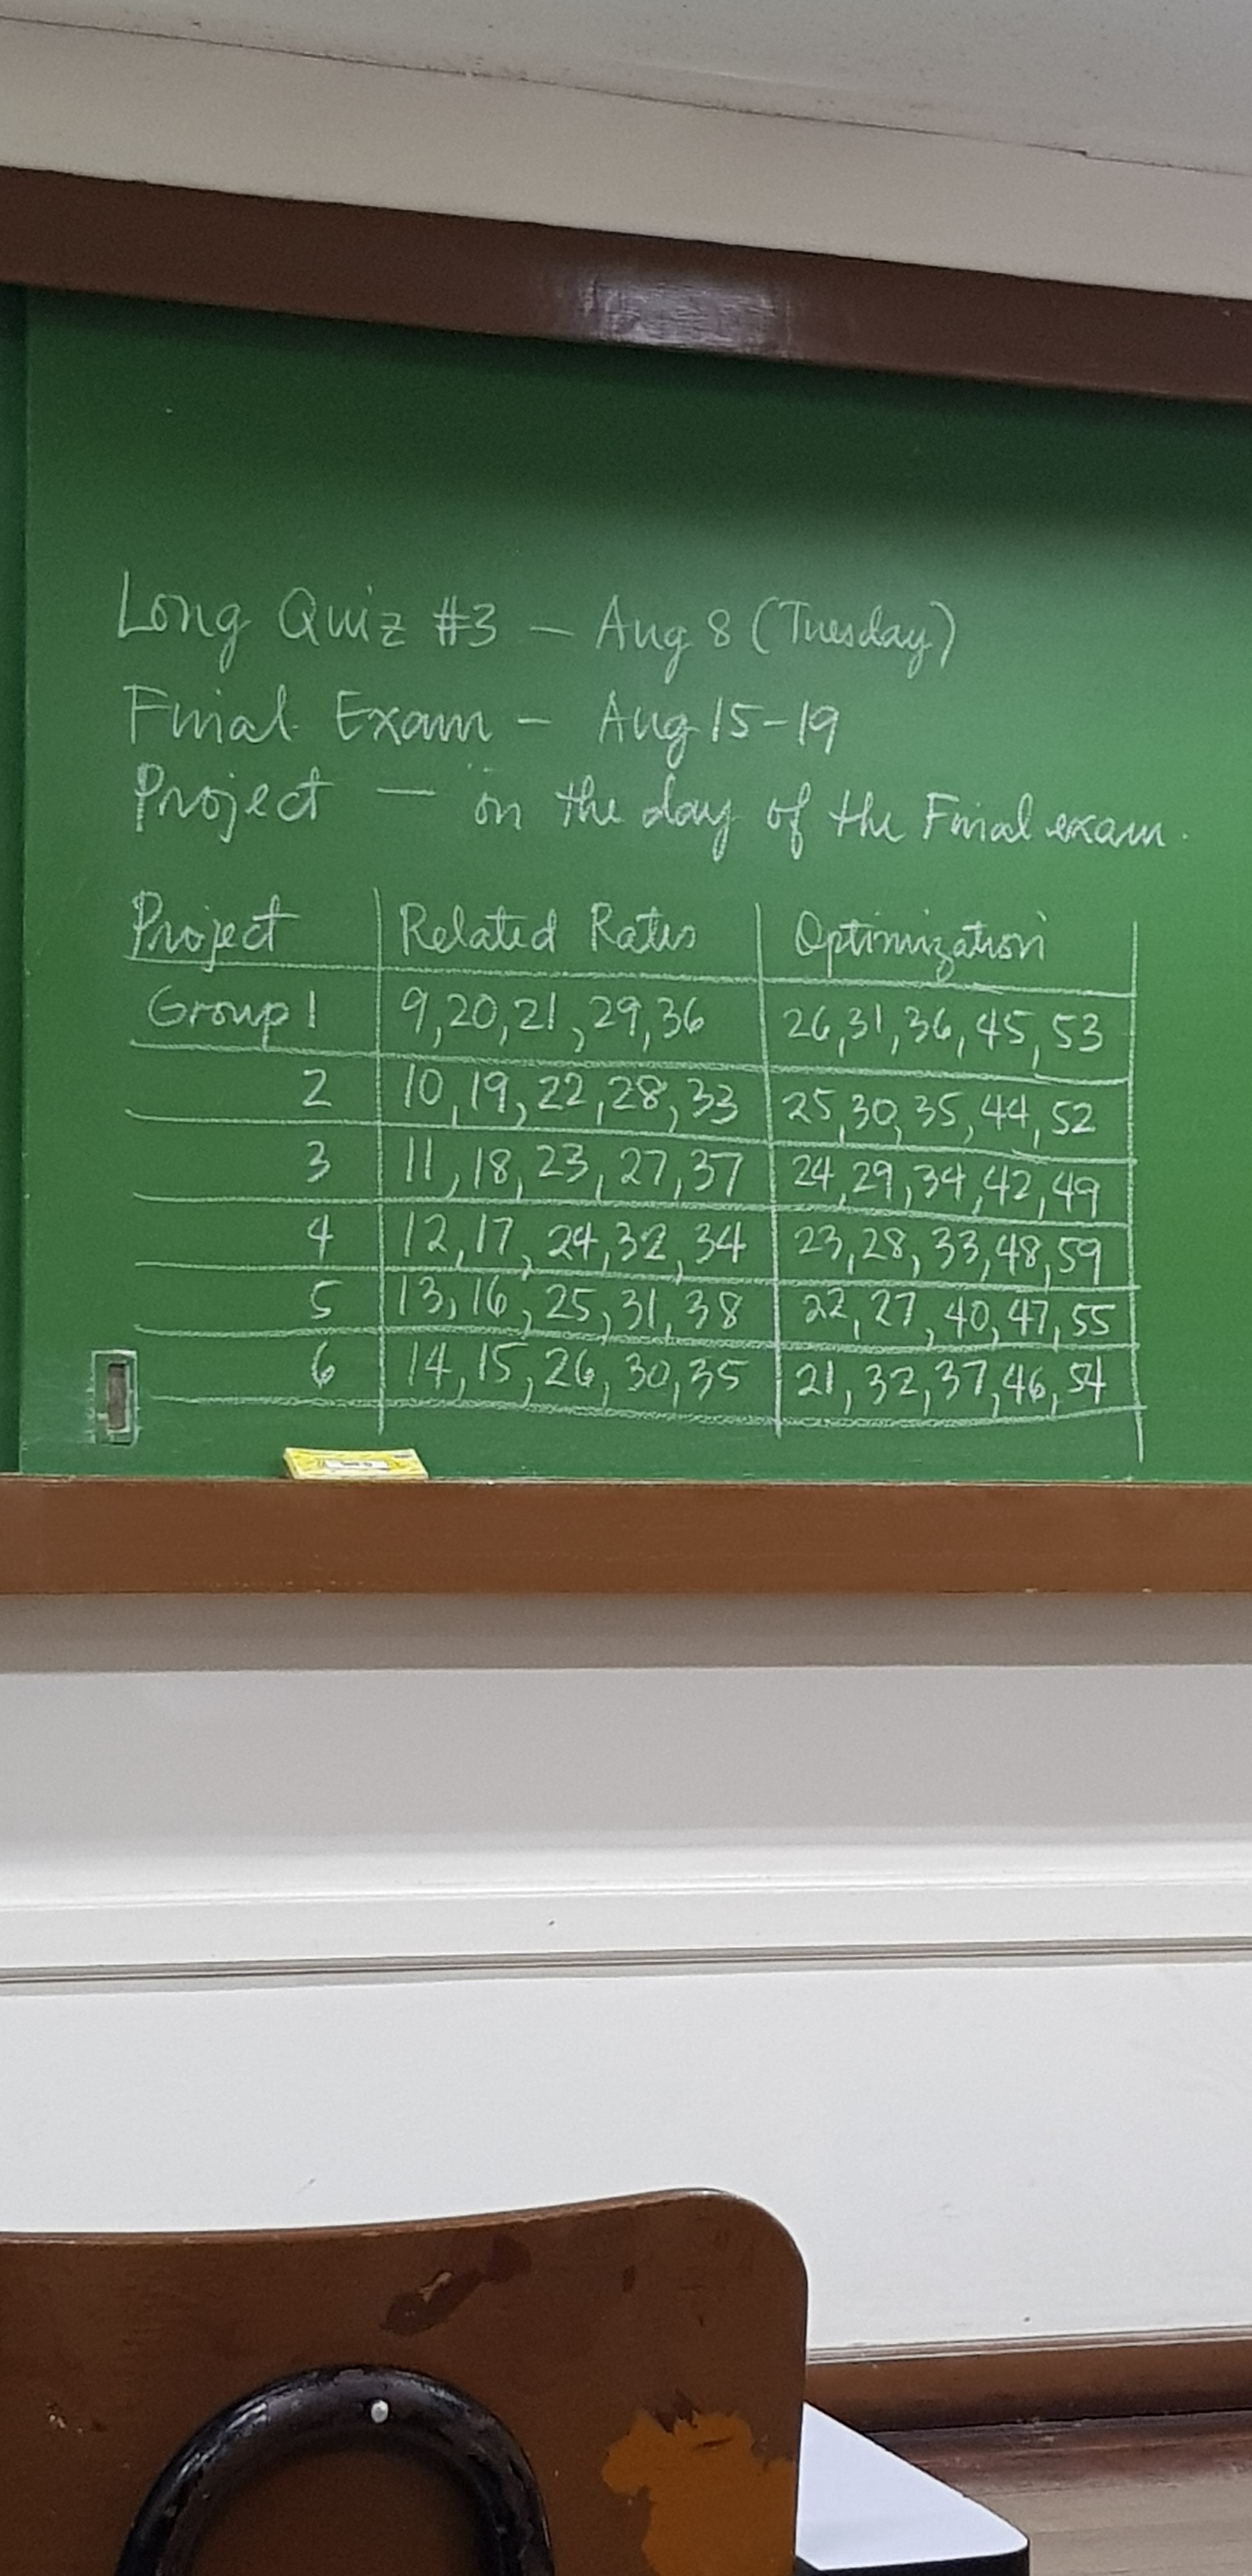 Long Quiz #3 – Aug 8 (Tuesday)
Final Exam – Aug 15-19
Project — on the day of the Final exam.
Project Related Rates Optimization
Group 1 9,20,21,29,36 26,31,36,45,53
2 10,19,22,28,33 25,30,35,44,52
3 11,18,23,27,37 24,29,34,42,49
4 12,17,24,32,34 23,28,33,48,59
5 13,16,25,31,38 22,27,40,47,55
6 14,15,26,30,35 21,32,37,46,54